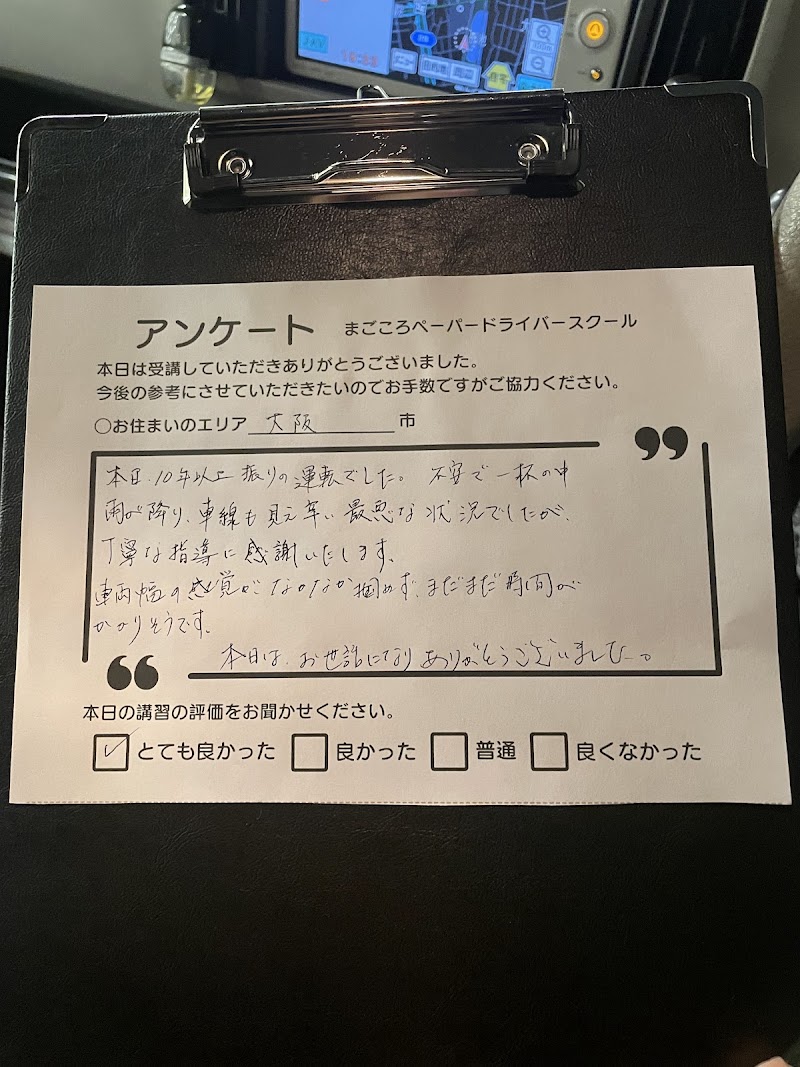 アンケート まごころペーパードライバースクール
本日は受講していただきありがとうございました。
今後の参考にさせていただきたいのでお手数ですがご協力ください。
○お住まいのエリア 大阪 市
本日、10年以上振りの運転でした。不安で一杯の中
雨が降り、車線も見え辛い最悪な状況でしたが、
丁寧な指導に感謝いたします。
車両幅の感覚がなかなか掴めず、まだまだ時間が
かかりそうです。
本日は、お世話になりありがとうございました。
本日の講習の評価をお聞かせください。
✓ とても良かった □ 良かった □ 普通 □ 良くなかった